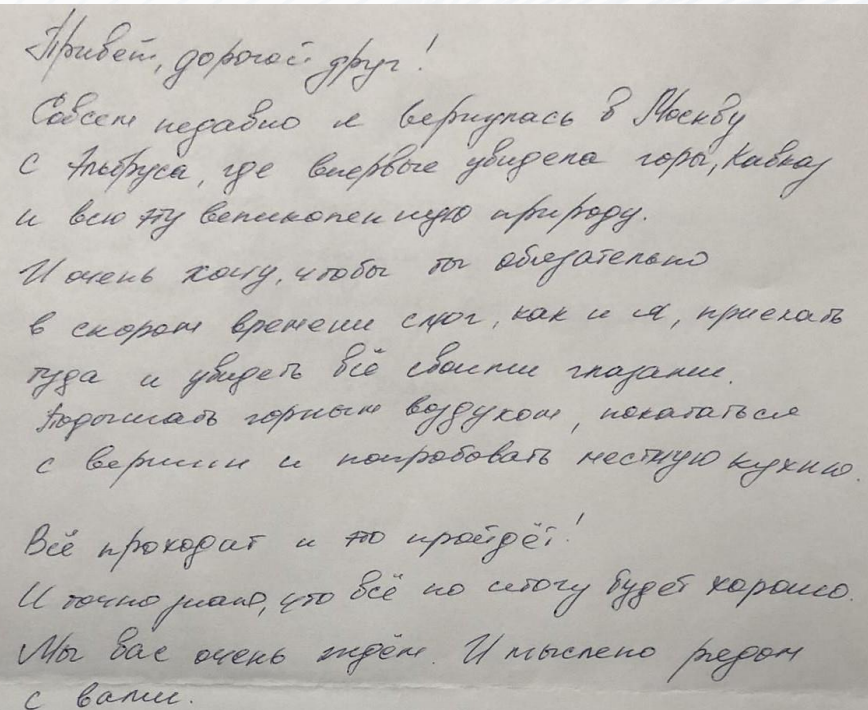 Привет, дорогой друг!
Совсем недавно я вернулась в Москву
с Эльбруса, где впервые увидела горы, Кавказ
и всю эту великолепную природу.
И очень хочу, чтобы ты обязательно
в скором времени смог, как и я, приехать
туда и увидеть всё своими глазами.
Подышать горным воздухом, покататься
с вершин и попробовать местную кухню.
Всё проходит и это пройдёт!
И точно знаю, что всё по итогу будет хорошо.
Мы вас очень ждём. И мыслено рядом
с вами.